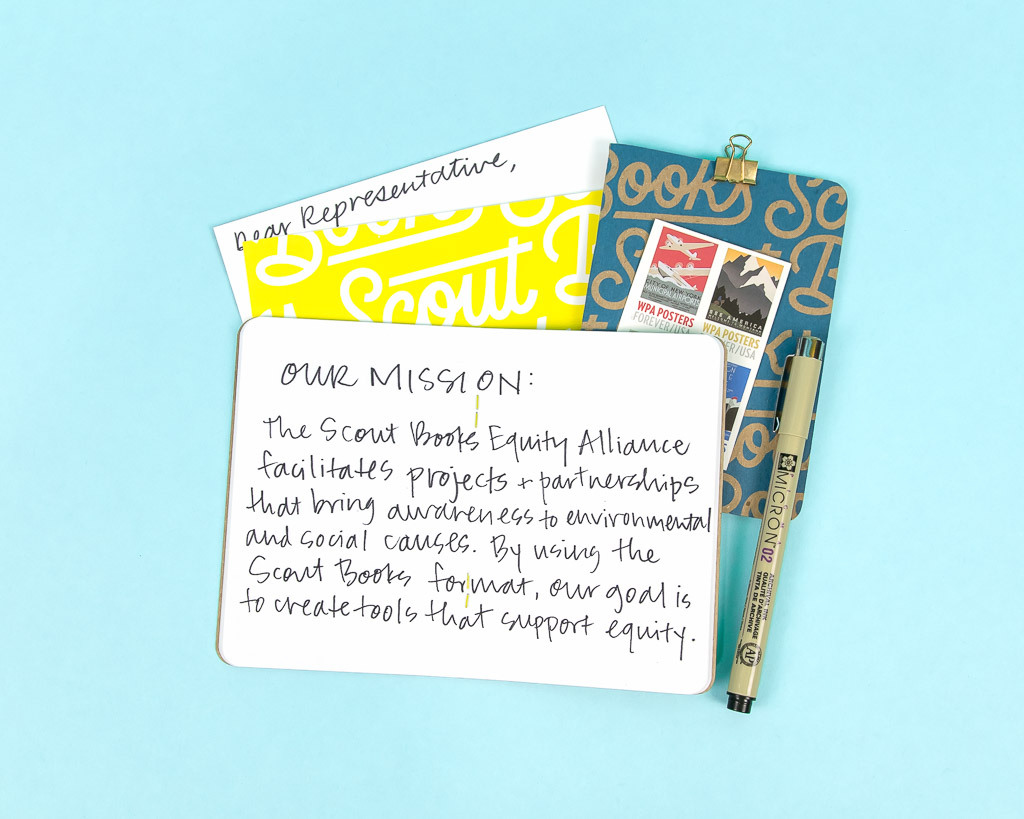 Dear Representative,
Books Sc
Scout B
Books Sc
Scout B
CITY OF NEW YORK
MUNICIPAL AIRPORTS
SEE AMERICA
WPA POSTERS
FOREVER/USA
WPA POSTERS
/USA
OUR MISSION:
The Scout Books Equity Alliance
facilitates projects + partnerships
that bring awareness to environmental
and social causes. By using the
Scout Books format, our goal is
to create tools that support equity.
MICRON 02
ARCHIVAL INK
QUALITÉ D'ARCHIVAGE
TINTA DE ARCHIVE
AP